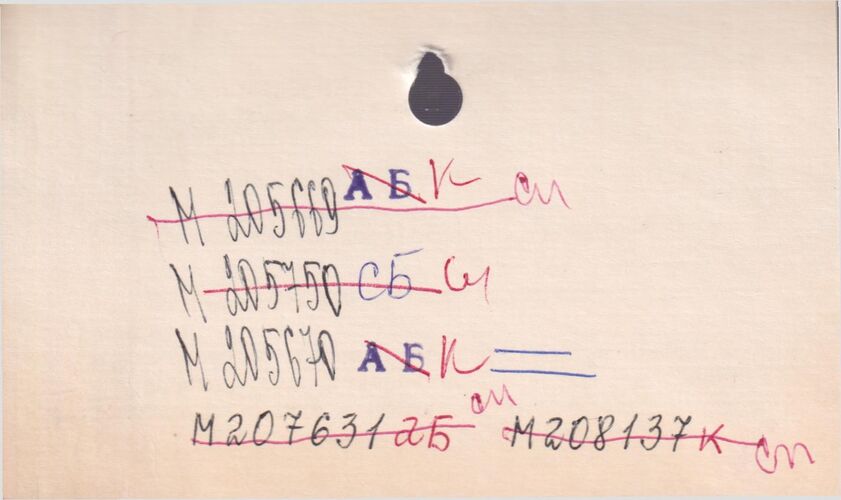 М 205669 АБ К сп
М 205750 СБ сп
М 205670 АБ К
М207631 аБ сп М208137 К сп